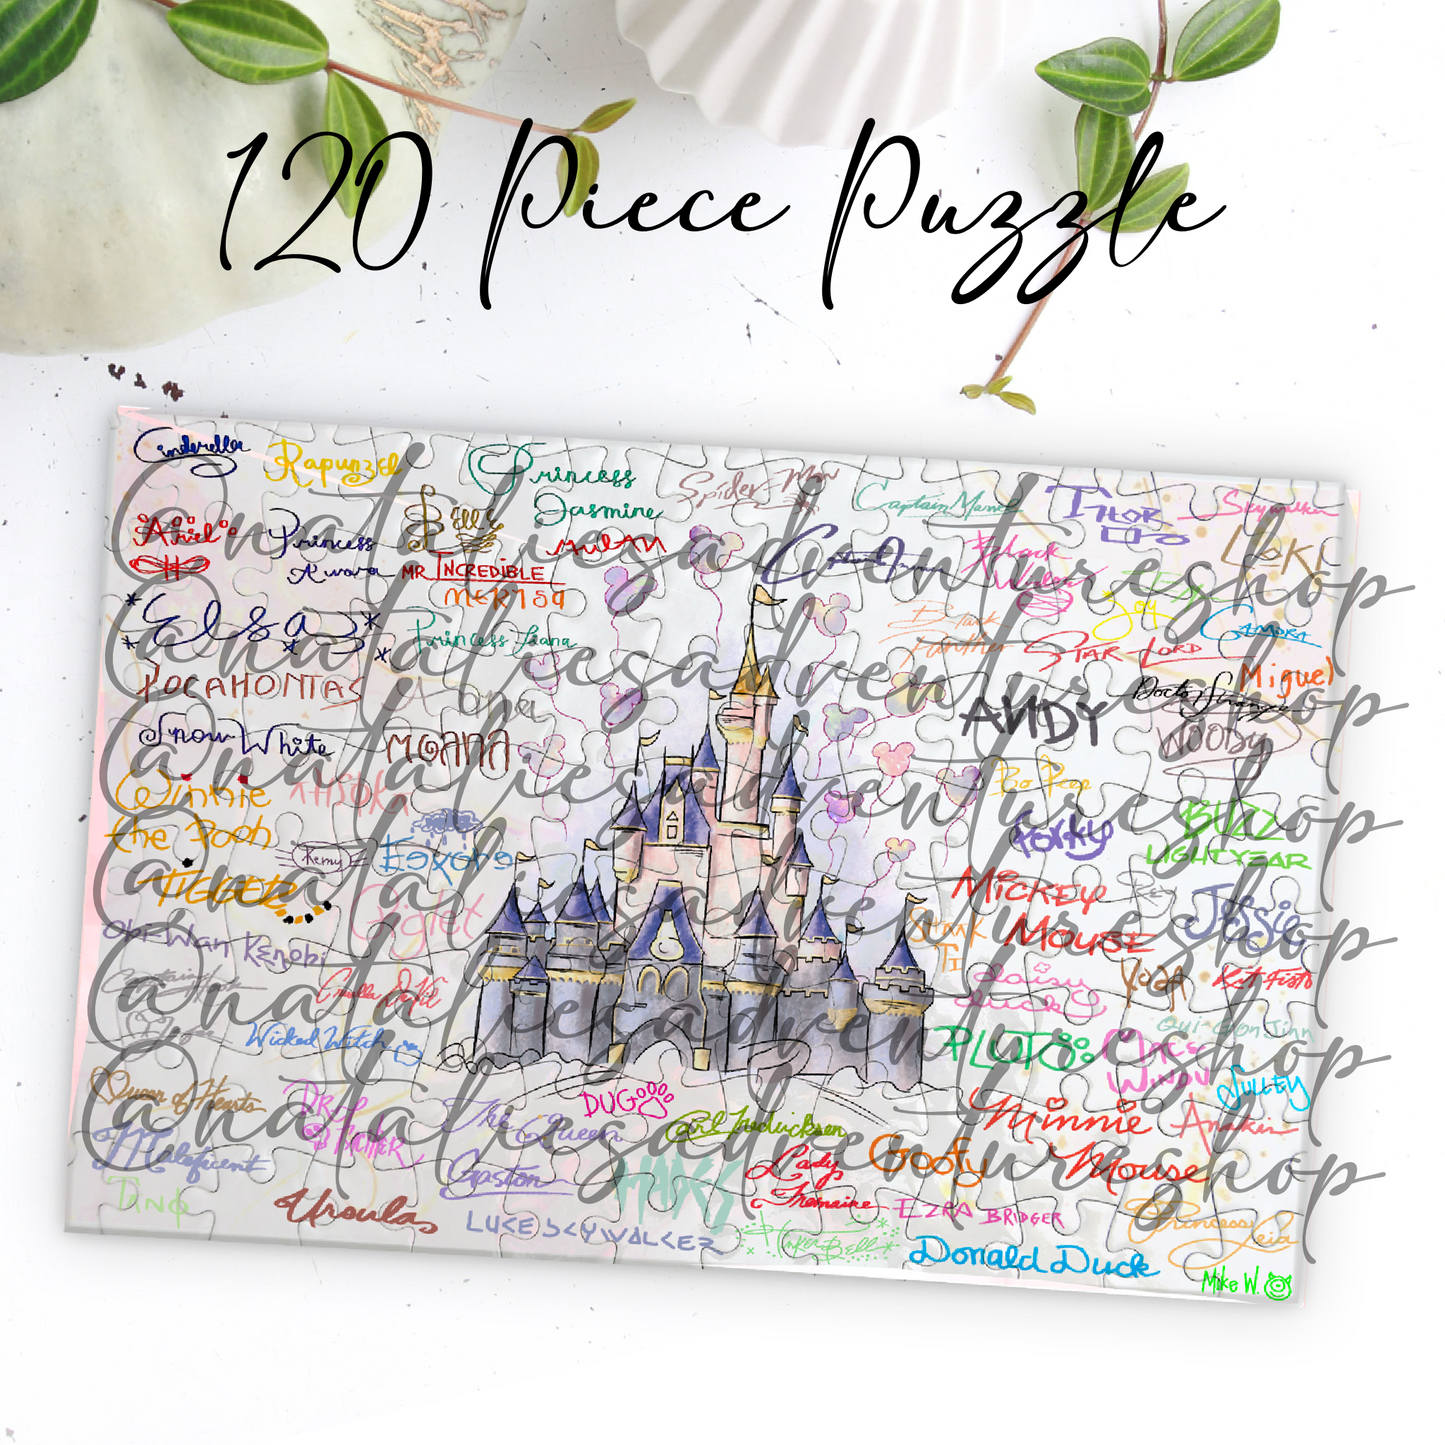 120 Piece Puzzle
Cinderella
Rapunzel
Princess
Jasmine
Spider-Man
Captain Marvel
THOR
Skywalker
Ariel
Princess
Aurora
Belle
MULAN
MR INCREDIBLE
MERIDA
Black
Widow
LOKI
Joy
GAMORA
*Elsa*
Princess Tiana
Black
Panther
STAR-LORD
Miguel
POCAHONTAS
Anna
ANDY
Doctor Strange
WOODY
Snow White
MOANA
Winnie
the Pooh
AHSOKA
Bo Peep
BUZZ
LIGHTYEAR
Remy
EEYORE
FORKY
TIGGER
Violet
MICKEY
MOUSE
Rex
Jessie
Obi-Wan Kenobi
SHAAK
TI
Captain Hook
Cruella De Vil
daisy
duck
YODA
Kit Fisto
Wicked Witch
PLUTO
Qui-Gon Jinn
MACE
WINDU
SULLEY
Queen of Hearts
DR.
FACILIER
The Queen
DUG
Carl Fredricksen
Minnie
Mouse
Anakin
Maleficent
Gaston
HADES
Lady
Tremaine
Goofy
Ursula
LUKE SKYWALKER
TinkerBell
EZRA BRIDGER
Princess
Leia
Donald Duck
Mike W.
@nataliesadventureshop
@nataliesadventureshop
@nataliesadventureshop
@nataliesadventureshop
@nataliesadventureshop
@nataliesadventureshop
@nataliesadventureshop
@nataliesadventureshop
@nataliesadventureshop